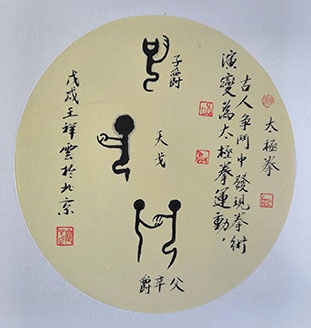 太極拳
古人争鬥中發現拳術
演變為太極拳運動。
子爵
天戈
父辛爵
戊戌王祥雲於北京